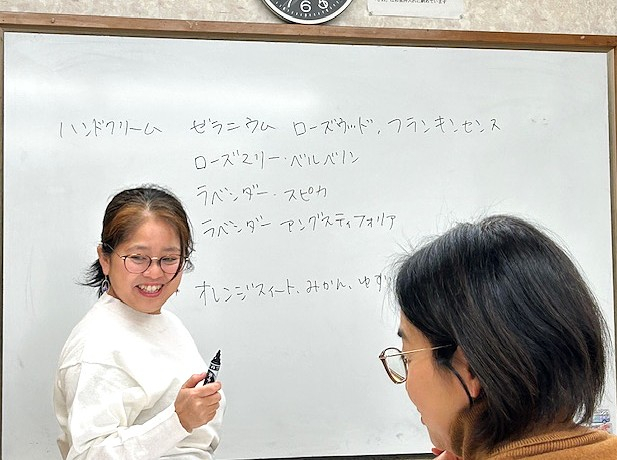 ハンドクリーム ゼラニウム ローズウッド、フランキンセンス
ローズマリー・ベルベノン
ラベンダー・スピカ
ラベンダー アングスティフォリア
オレンジスイート、みかん、ゆず